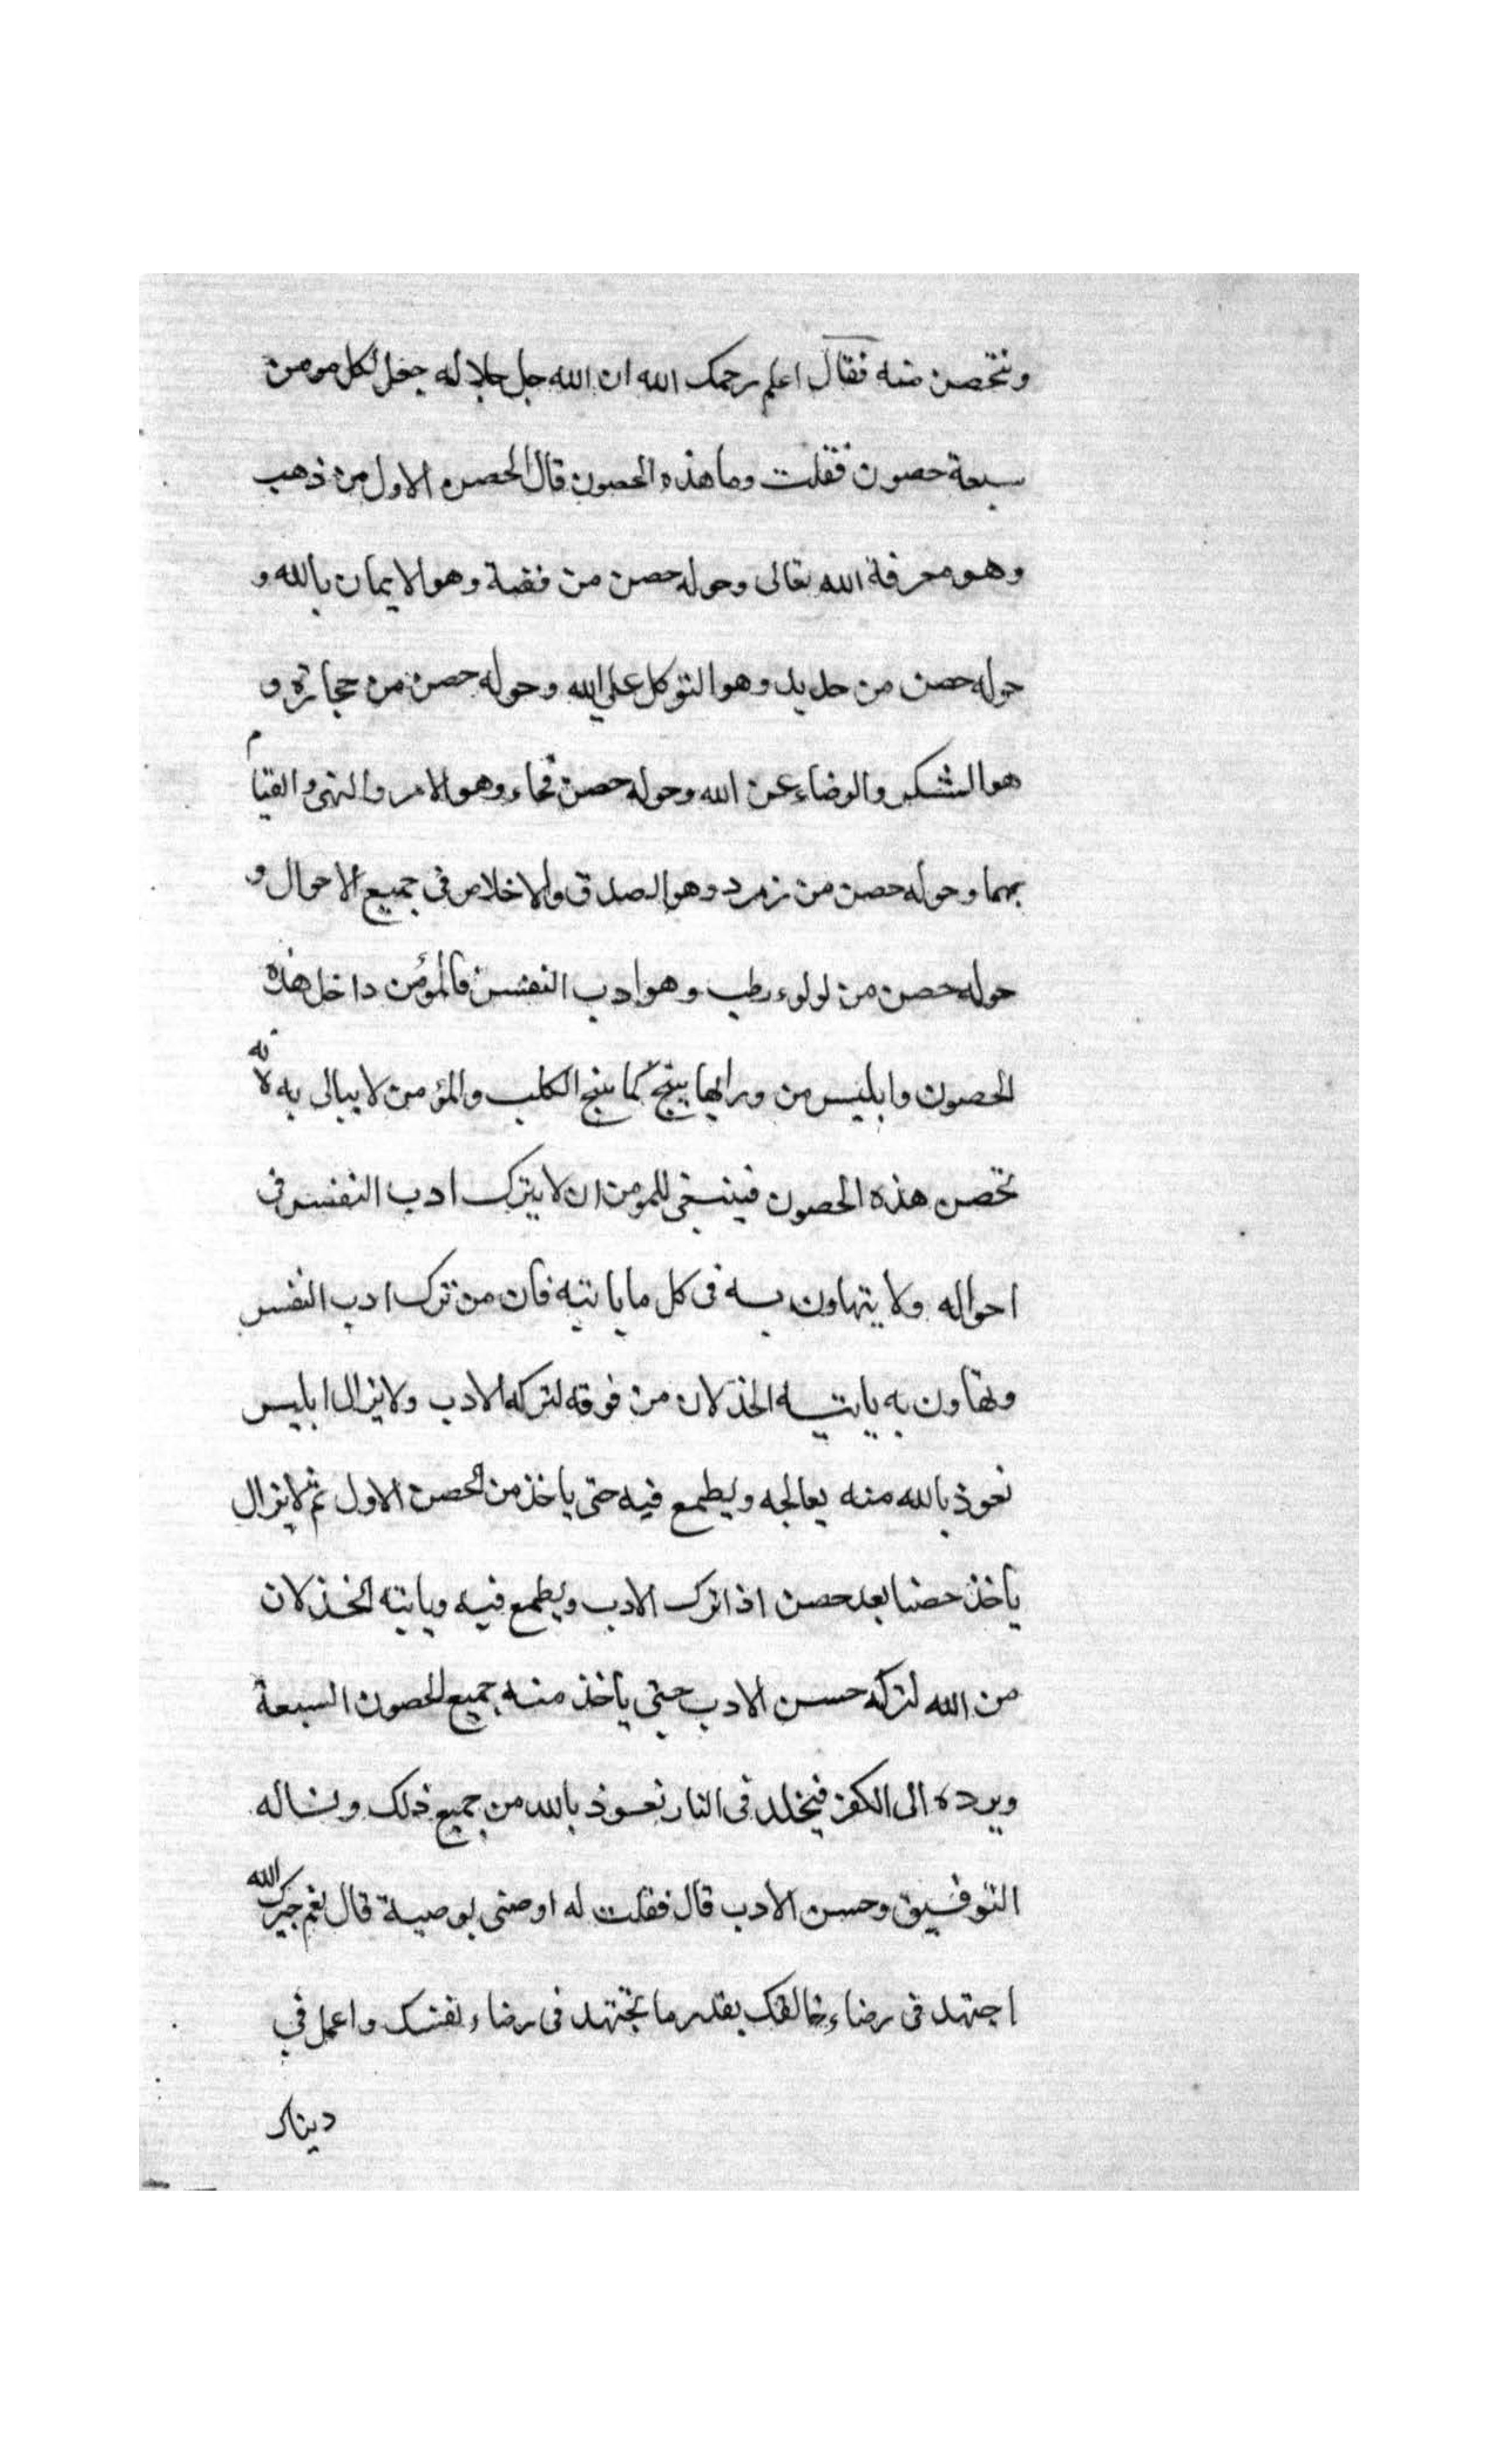 ونتحصن منه فقال اعلم رحمك الله ان الله جل جلاله جعل لكل مومن
سبعة حصون فقلت وما هذه الحصون قال الحصن الاول من ذهب
وهو معرفة الله تعالى وحوله حصن من فضة وهو الايمان بالله و
حوله حصن من حديد وهو التوكل على الله وحوله حصن من حجارة و
هو الشكر والرضاء عن الله وحوله حصن فخاء وهو الامر والنهى والقيام
بهما وحوله حصن من زمرد وهو الصدق والاخلاص فى جميع الاحوال و
حوله حصن من لولوء رطب وهو ادب النفس فالمؤمن داخل هذه
الحصون وابليس من ورايها ينبح كما ينبح الكلب والمؤمن لا يبالى به لانه
تحصن هذه الحصون فينبغى للمومن ان لا يترك ادب النفس فى
احواله ولا يتهاون به فى كل ما ياتيه فان من ترك ادب النفس
وتهاون به ياتيه الخذلان من فوقه لتركه الادب ولا يزال ابليس
نعوذ بالله منه يعالجه ويطمع فيه حتى ياخذ من الحصن الاول ثم لا يزال
يأخذ حصنا بعد حصن اذا ترك الادب ويطمع فيه وياتيه الخذلان
من الله لتركه حسن الادب حتى يأخذ منه جميع الحصون السبعة
ويرده الى الكفر فيخلد فى النار نعوذ بالله من جميع ذلك ونساله
التوفيق وحسن الادب قال فقلت له اوصنى بوصية قال نعم الله
اجتهد فى رضاء خالقك بقدر ما تجتهد فى رضاء نفسك واعمل فى
ديناك